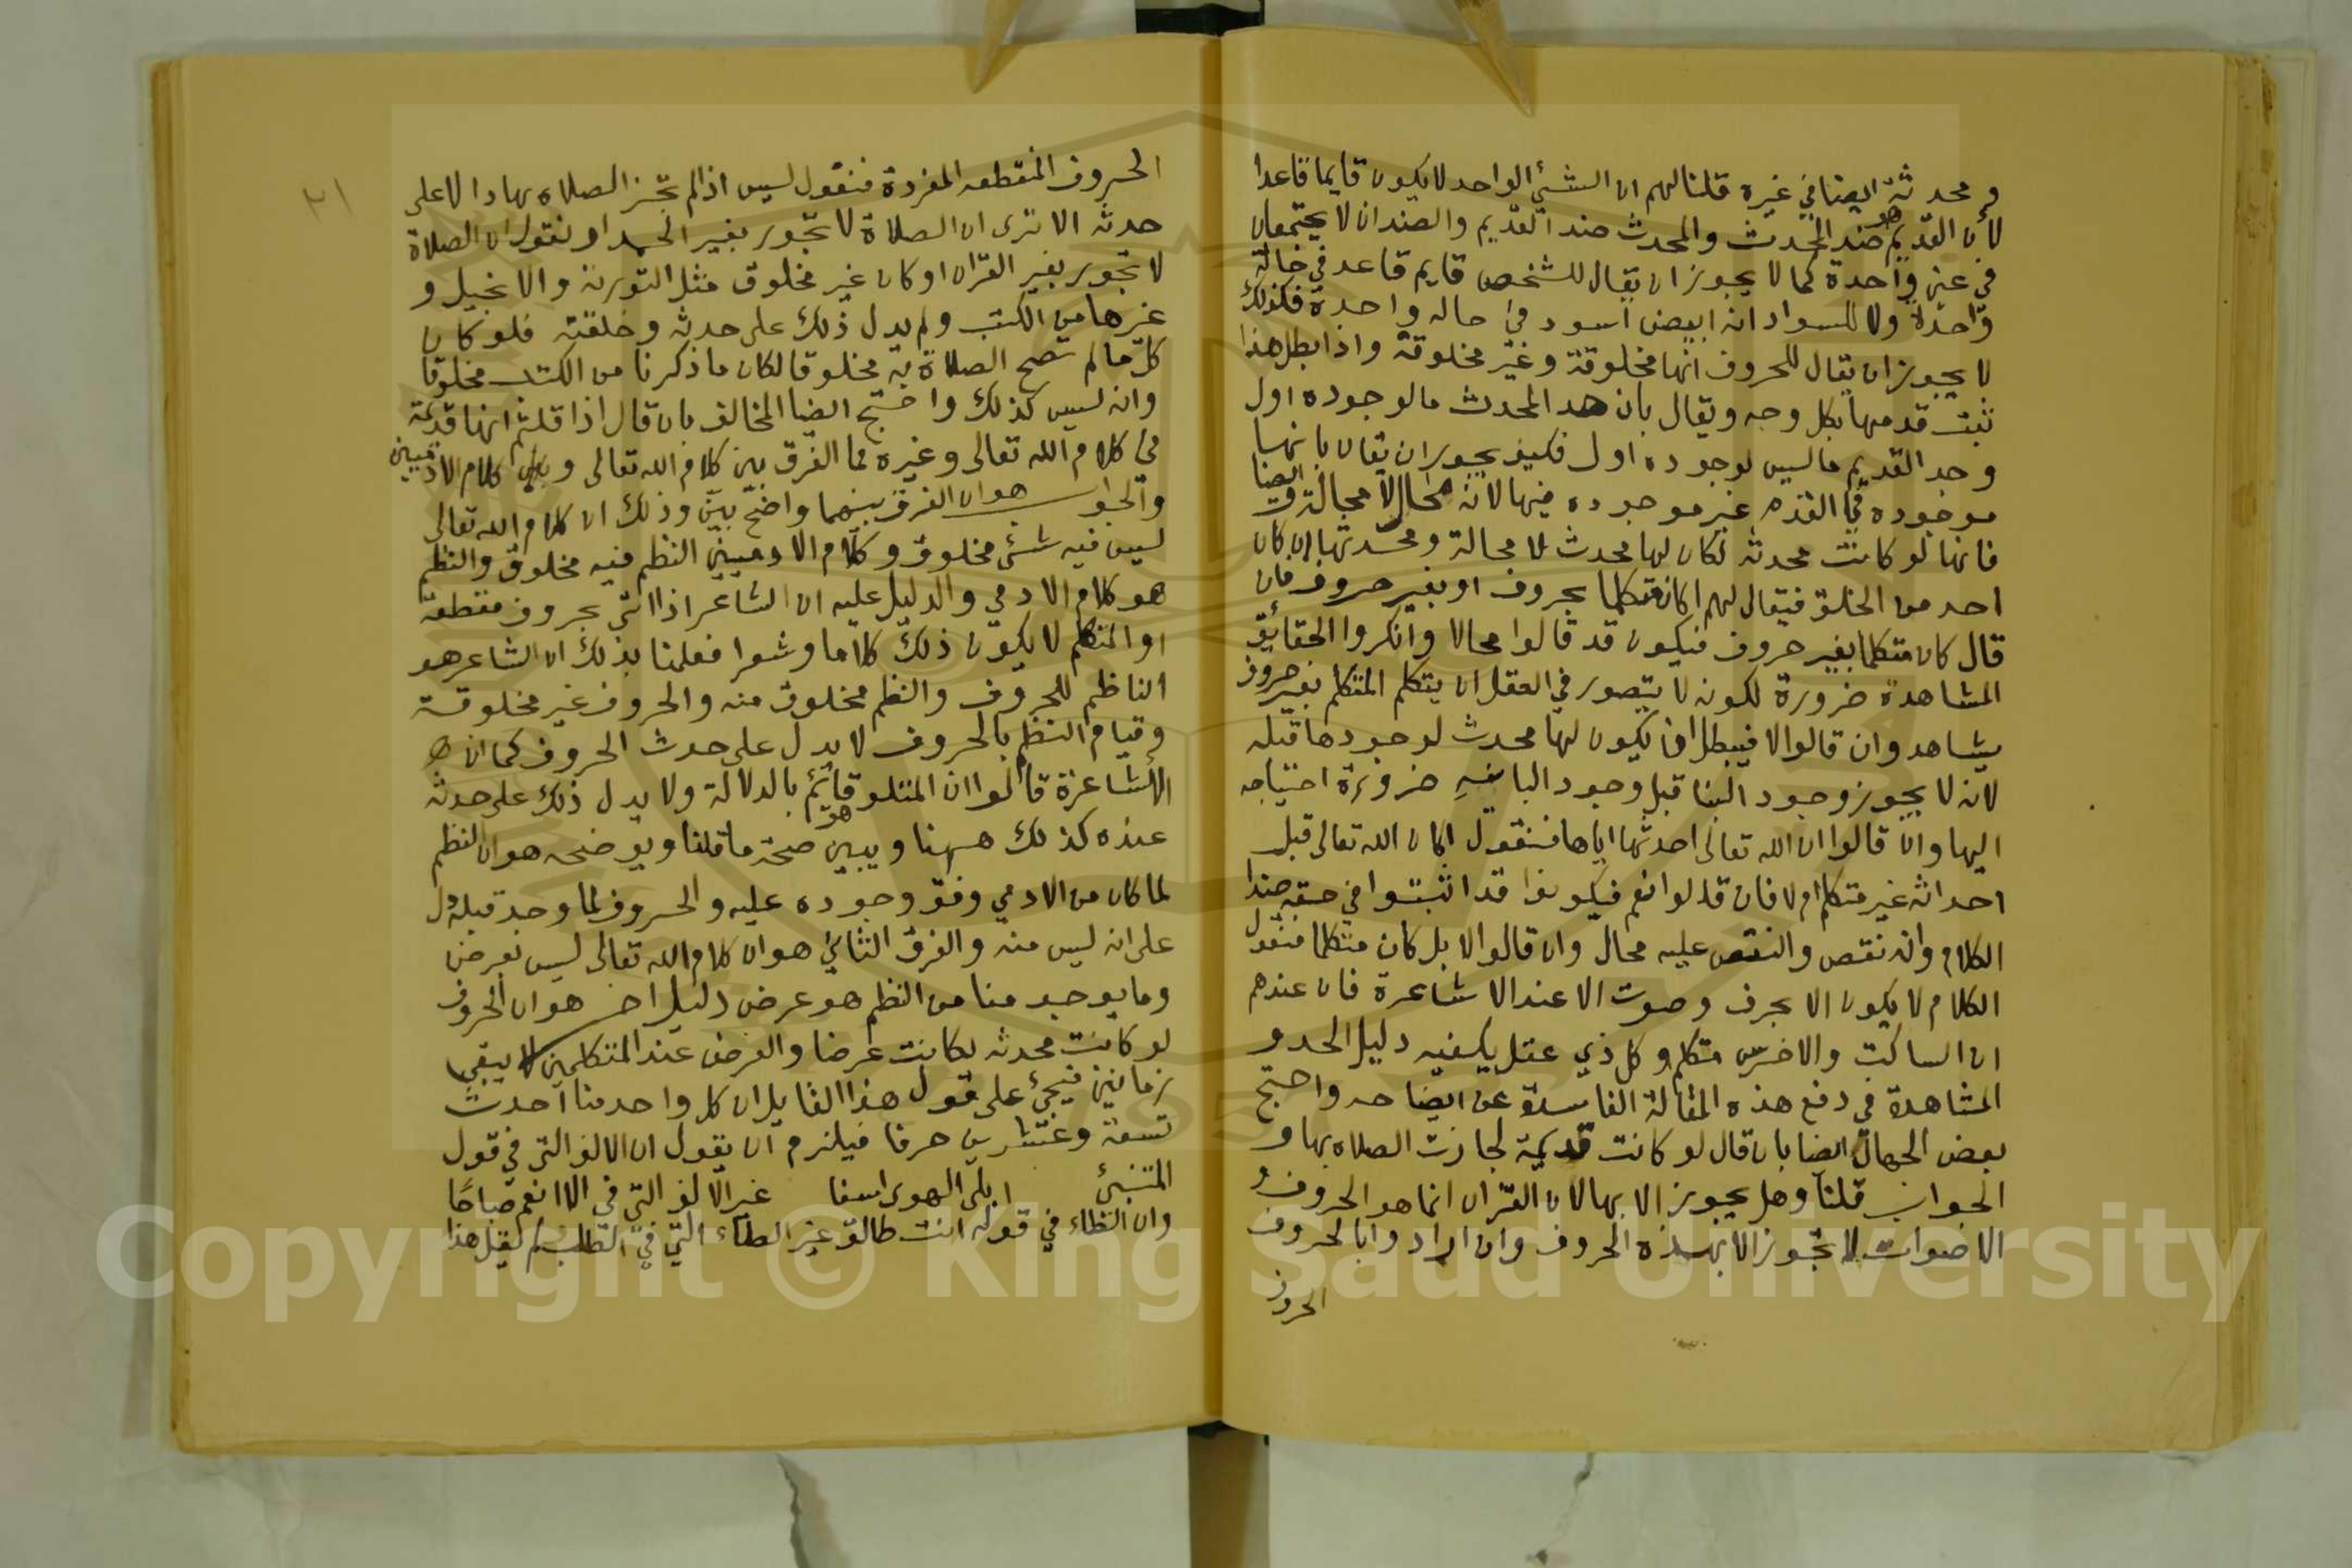 ومحدثة ايضا في غيره قلنا لهم ان الشئ الواحد لا يكون قايما قاعدا
لان القديم هو ضد المحدث والمحدث ضد القديم والضدان لا يجتمعان
في عين واحدة كما لا يجوز ان يقال للشخص قايم قاعد في حالة
واحدة ولا للسواد انه ابيض اسود في حاله واحدة فكذلك
لا يجوز ان يقال للحروف انها مخلوقة وغير مخلوقة واذا بطل هذا
ثبت قدمها بكل وجه ويقال بان حد المحدث ما لوجوده اول
وحد القديم ما ليس لوجوده اول فكيف يجوز ان يقال بانها
موجوده في القدم غير موجوده فيها لانه محال لا محالة وايضا
فانها لو كانت محدثه لكان لها محدث لا محالة ومحدثها ان كان
احد من الخلق فيقال لهم اكان متكلما بحروف او بغير حروف فان
قال كان متكلما بغير حروف فيكون قد قالوا محالا وانكروا الحقايق
المشاهدة ضرورة لكونه لا يتصور في العقل ان يتكلم المتكلم بغير حروف
يشاهد وان قالوا لا فيبطل ان يكون لها محدث لوجودها قبله
لانه لا يجوز وجود البنا قبل وجود الباني ضرورة احتياجه
اليها وان قالوا ان الله تعالى احدثها اياها فنقول اكان الله تعالى قبل
احداثه غير متكلم ام لا فان قالوا نعم فيكونوا قد اثبتوا في حقه ضد
الكلام وانه نقص والنقص عليه محال وان قالوا لا بل كان متكلما فنقول
الكلام لا يكون الا بحرف وصوت الا عند الاشاعرة فان عندهم
ان الساكت والاخرس متكلم وكل ذي عقل يكفيه دليل الحد و
المشاهدة في دفع هذه المقالة الفاسدة عن ايضاحه واحتج
بعض الجهال ايضا بان قال لو كانت قديمة لجازت الصلاه بها و
الجواب قلنا وهل يجوز الا بها لان القران انما هو الحروف و
الاصوات لا تجوز الا بهذه الحروف وان ارادوا بالحروف
الحروف
٢١
الحروف المنقطعه المفردة فنقول ليس اذا لم تجز الصلاه بها دالا على
حدثه الا ترى ان الصلاة لا تجوز بغير الحمد او نقول ان الصلاة
لا تجوز بغير القران او كان غير مخلوق مثل التورية والانجيل و
غيرها من الكتب ولم يدل ذلك على حدثه وخلقته فلو كان
كل ما لم تصح الصلاة به مخلوقا لكان ما ذكرنا من الكتب مخلوقا
وانه ليس كذلك واحتج ايضا المخالف بان قال اذا قلتم انها قديمة
في كلام الله تعالى وغيره فما الفرق بين كلام الله تعالى وبين كلام الادميين
والجواب هو ان الفرق بينهما واضح بيّن وذلك ان كلام الله تعالى
ليس فيه شئ مخلوق وكلام الادميين النظم فيه مخلوق والنظم
هو كلام الادمي والدليل عليه ان الشاعر اذا اتى بحروف مقطعة
او المتكلم لا يكون ذلك كلاما وشعرا فعلمنا بذلك ان الشاعر هو
الناظم للحروف والنظم مخلوق منه والحروف غير مخلوقة
وقيام النظم بالحروف لا يدل على حدث الحروف كما ان
الاشاعرة قالوا ان المتلو قائم بالدلالة ولا يدل ذلك على حدثه
عنده كذلك ههنا ويبين صحة ما قلنا ويوضحه هو ان النظم
لما كان من الادمي وقف وجوده عليه والحروف لما وجد قبله دل
على انه ليس منه والفرق الثاني هو ان كلام الله تعالى ليس بعرض
وما يوجد منا من النظم هو عرض دليل اخر هو ان الحروف
لو كانت محدثه لكانت عرضا والعرض عند المتكلمين لا يبقى
زمانين فيجئ على قول هذا القايل ان كل واحد منا احدث
تسعة وعشرين حرفا فيلزم ان يقول ان الالف التي في قول
المتنبئ ابلى الهوى اسفا غير الالف التي في الا انعم صباحًا
وان الطاء في قوله انت طالق غير الطاء التي في الطلب لم يقل هذا